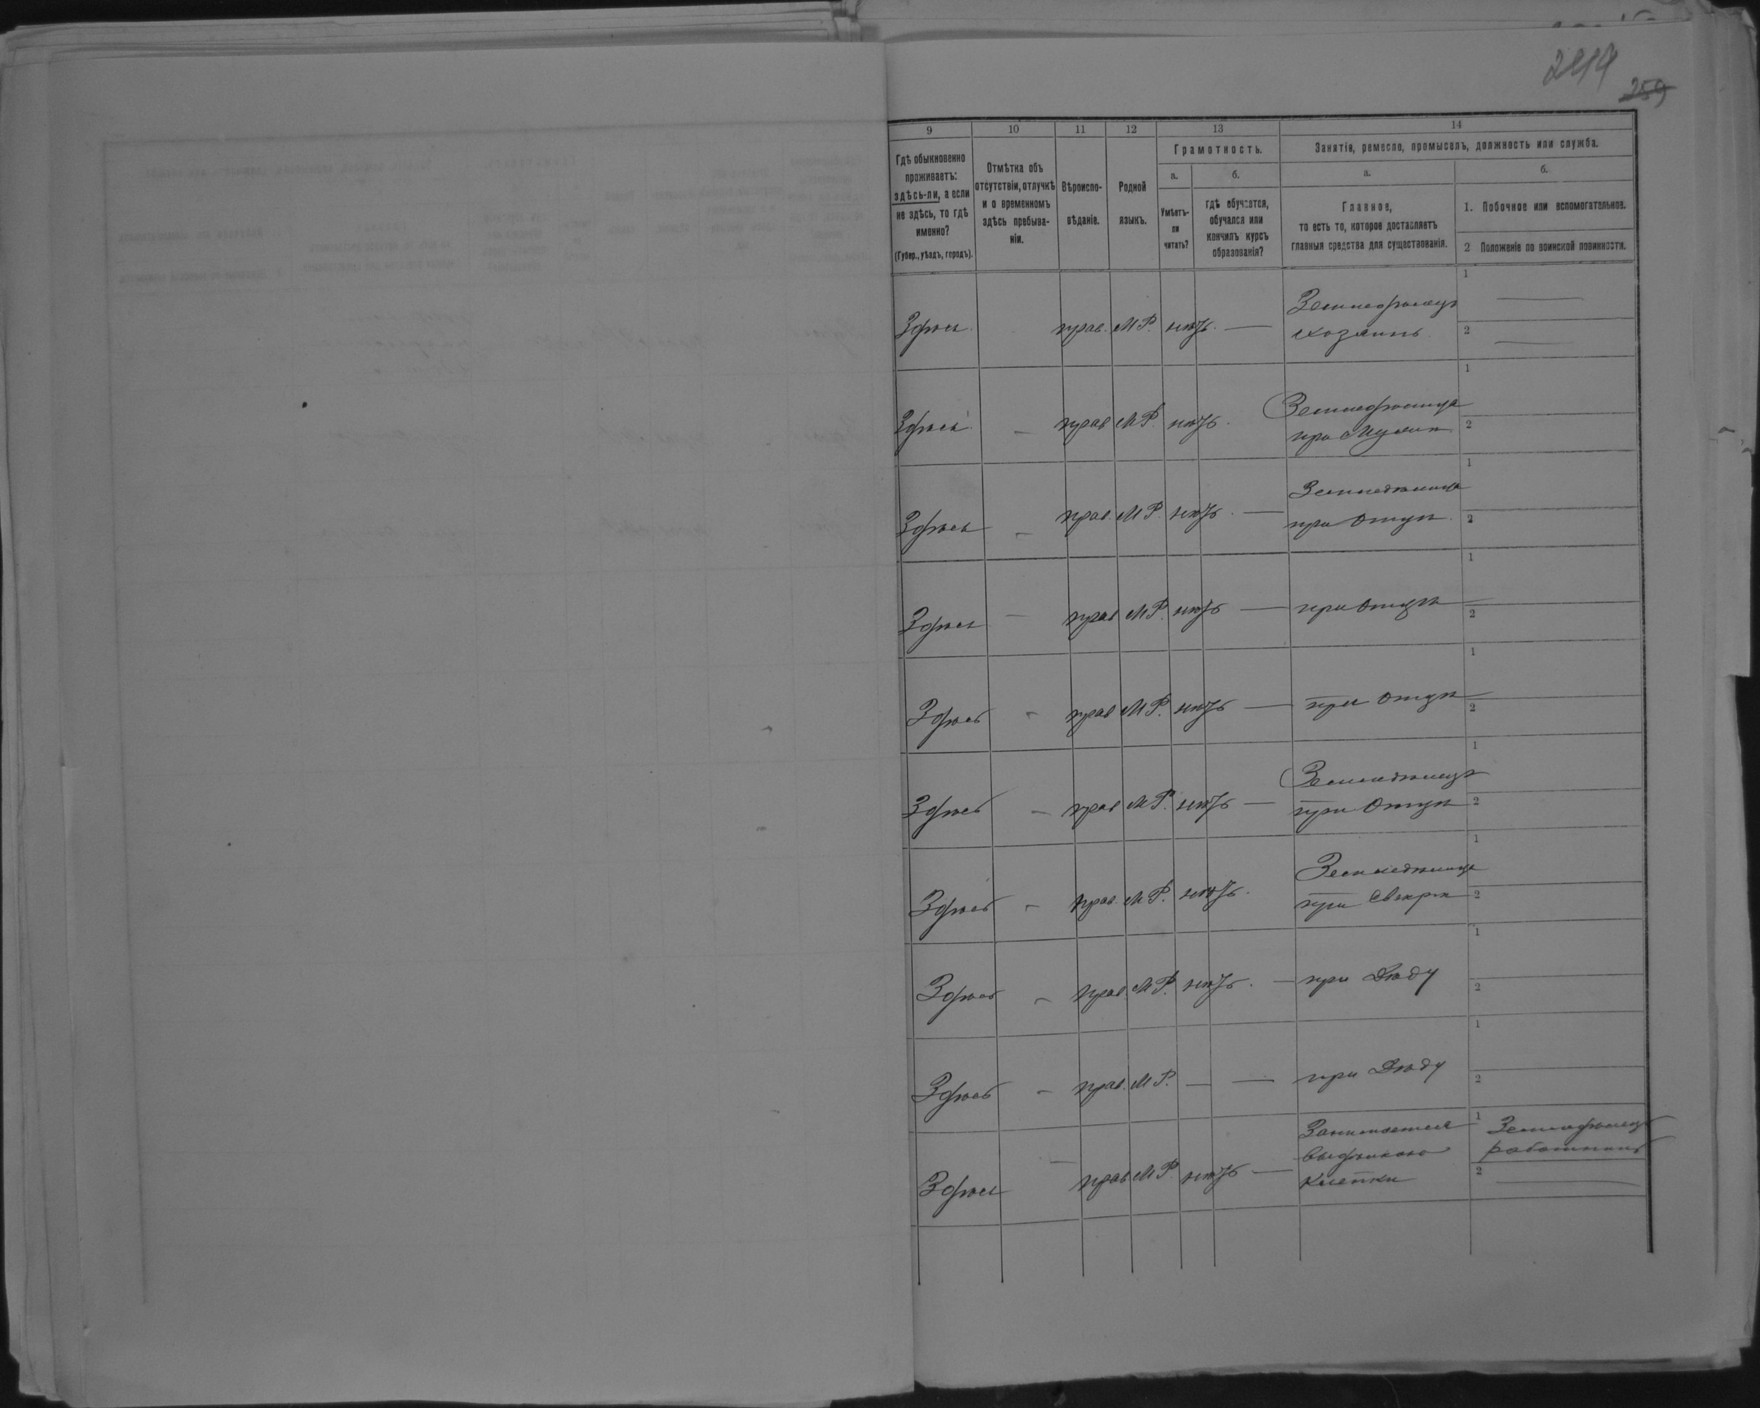 244
259
9 10 11 12 13 14
Гдѣ обыкновенно проживаетъ: здѣсь-ли, а если не здѣсь, то гдѣ именно? (Губер., уѣздъ, городъ).
Отмѣтка объ отсутствіи, отлучкѣ и о временномъ здѣсь пребываніи.
Вѣроисповѣданіе.
Родной языкъ.
Грамотность.
а. Умѣетъ-ли читать?
б. гдѣ обучается, обучался или кончилъ курсъ образованія?
Занятіе, ремесло, промыселъ, должность или служба.
а. Главное, то есть то, которое доставляетъ главныя средства для существованія.
б.
1. Побочное или вспомогательное.
2 Положеніе по воинской повинности.
Здѣсь прав. М.Р. нѣтъ. — Земледѣлецъ хозяинъ 1 — 2 —
Здѣсь – прав М.Р. нѣтъ. Земледѣлица при Мужѣ 1 2
Здѣсь – прав М.Р. нѣтъ. — Земледѣлица при Отцѣ 1 2
Здѣсь – прав М.Р. нѣтъ — при Отцѣ 1 2
Здѣсь – прав М.Р. нѣтъ — при Отцѣ 1 2
Здѣсь – прав М.Р. нѣтъ — Земледѣлецъ при Отцѣ 1 2
Здѣсь – прав. М.Р. нѣтъ. Земледѣлица при Свекрѣ 1 2
Здѣсь – прав. М.Р. нѣтъ. — при Дѣду 1 2
Здѣсь – прав. М.Р. — — при Дѣду 1 2
Здѣсь – прав М.Р. нѣтъ — Занимается выдѣлкою клепки 1 Земледѣлец работникъ 2 —